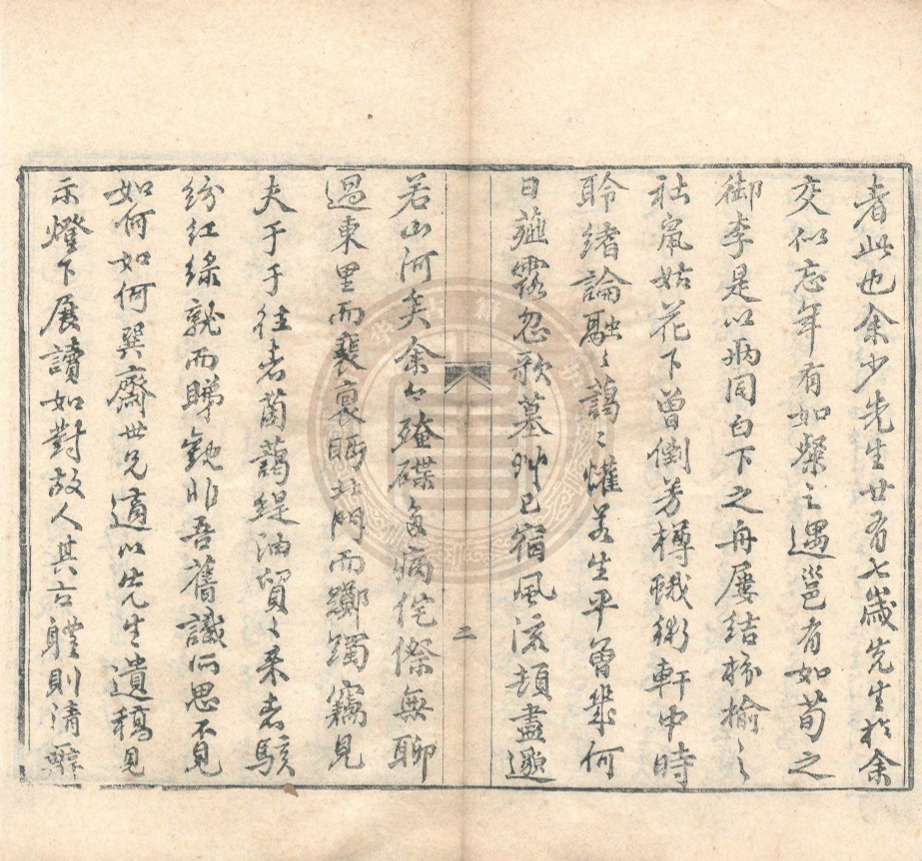 者此也余少先生廿有七歲先生於余
交似忘年有如粲之遇邕有如荀之
御李是以兩同白下之舟屢結枌榆之
社鼠姑花下曾倒芳樽軒中時
聆緒論融融藹藹懽若生平曾幾何
日薤露忽歌墓艸已宿風流頓盡邈
若山河矣余以殗殜多病侘傺無聊
過東里而裴裹眄北門而躑躅竊見
夫于于往者茵藹緹油貿貿來者駭
紛紅綠就而睇觀非吾舊識所思不見
如何如何巽齋世兄適以先生遺稿見
示燈下展讀如對故人其古體則清辭
二